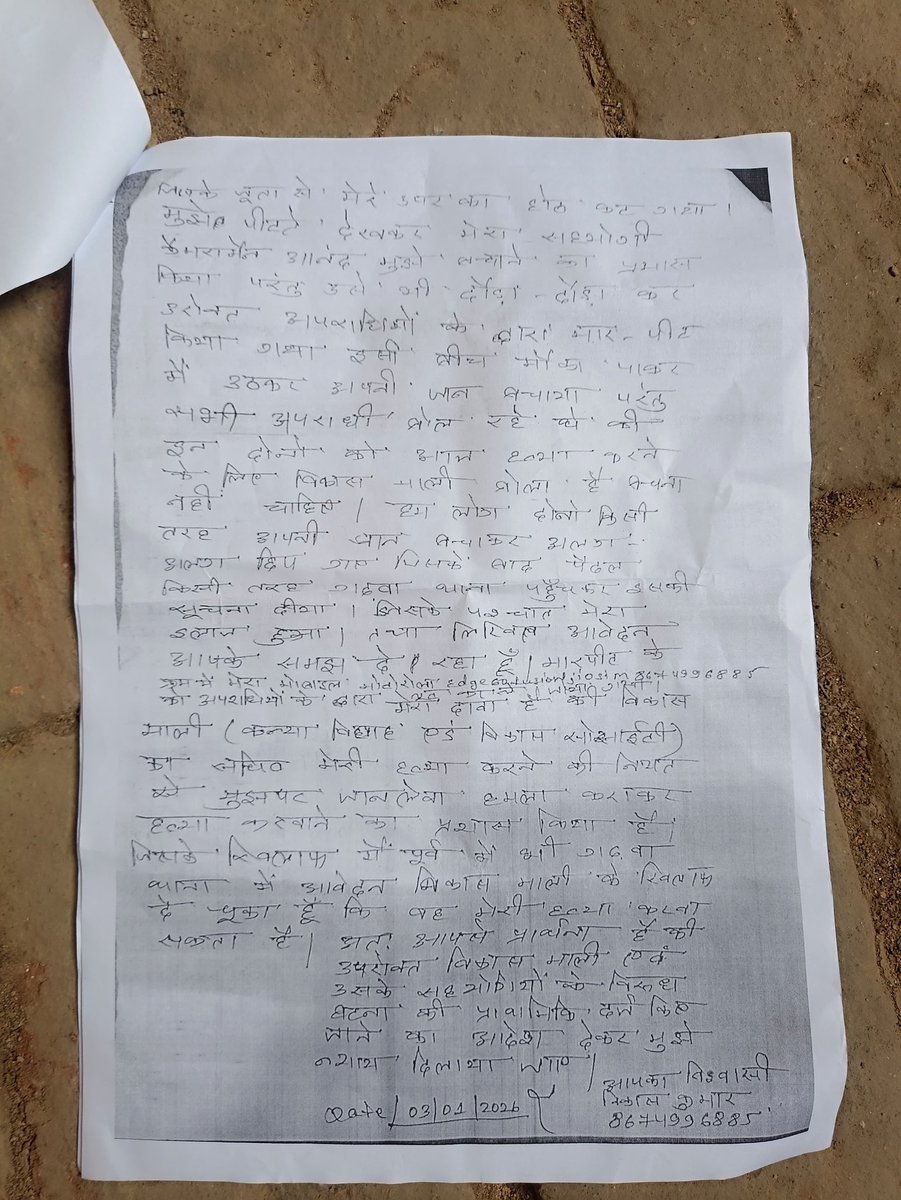 जिसके जूता से मेरे उपर का होठ कट गया।
मुझे पीटते देखकर मेरा सहयोगी
कैमरामैन आनंद मुझे बचाने का प्रयास
किया परंतु उसे भी दौड़ा-दौड़ा कर
उरोक्त अपराधियों के द्वारा मार-पीट
किया गया इसी बीच मौका पाकर
मैं उठकर अपनी जान बचाया परंतु
सभी अपराधी बोल रहे थे की
इन दोनो को आज हत्या करने
के लिए विकास माली बोला है बचना
नही चाहिए। हम लोग दोनो किसी
तरह अपनी जान बचाकर अलग-
अलग छिप गए जिसके बाद पैदल
किसी तरह गढ़वा थाना पहुँचकर इसकी
सूचना दीया। जिसके पश्चात मेरा
इलाज हुआ। तथा लिखित आवेदन
आपके समझ दे रहा हूँ। मारपीट के
क्रम में मेरा मोबाइल मोटोरोला Edge 60 fusion jio sim 8674996885
को अपराधियों के द्वारा लिया गया।
मेरा दावा है की विकास
माली (कन्या विवाह एवं विकास सोसाईटी)
का सचिव मेरी हत्या करने की नियत
से मुझपर जानलेवा हमला कराकर
हत्या करवाने का प्रयास किया है।
जिसके खिलाफ में पूर्व में भी गढ़वा
थाना में आवेदन विकास माली के खिलाफ
दे चूका हूँ कि वह मेरी हत्या करवा
सकता है। अतः आपसे प्रार्थना है की
उपरोक्त विकास माली एवं
उसके सहयोगियों के विरुध
घटना की प्राथमिकि दर्ज किए
जाने का आदेश देकर मुझे
न्याय दिलाया जाए।
आपका विश्वासी
विकास कुमार
8674996885
Date/03/01/2026